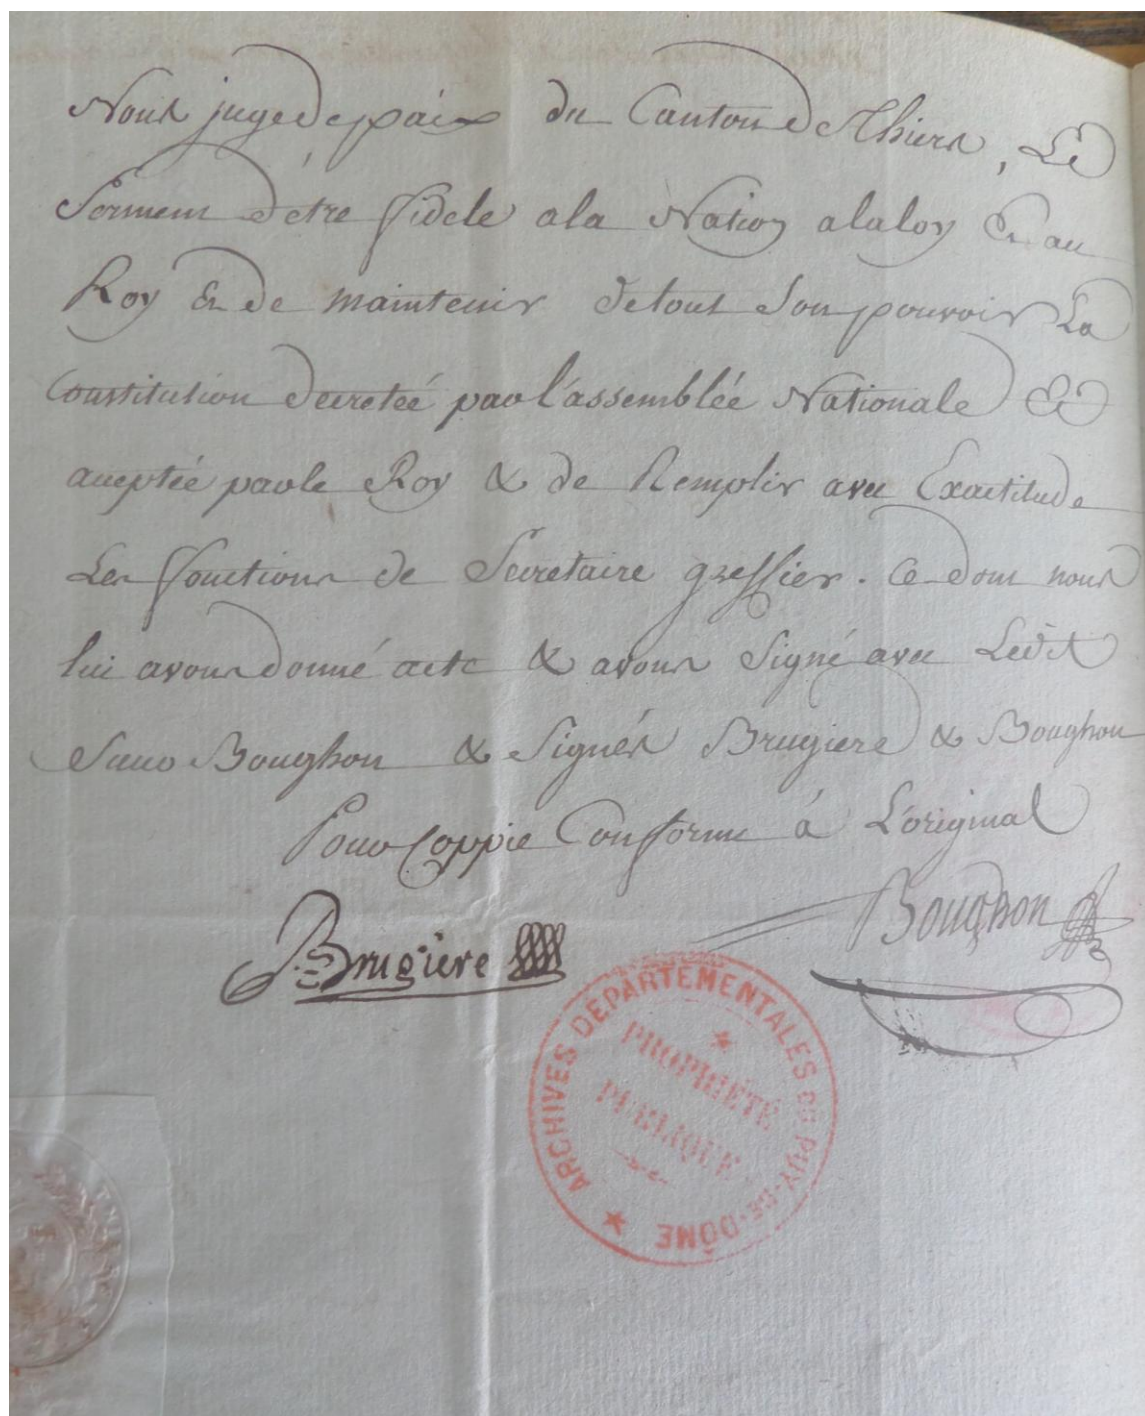 Nous juge de paix du Canton de Thiers, Le
Serment d'être fidele a la Nation a la loy Et au
Roy Et de maintenir de tout Son pouvoir La
Constitution decretée par l'assemblée Nationale Et
aceptée par le Roy & de Remplir avec Exactitude
Les fonctions de Secretaire greffier. Ce dont nous
lui avons donné acte & avons Signé avec Ledit
Boughon & Signés Brugiere & Boughon
Pour Coppie Conforme à L'original
Brugiere
Boughon
ARCHIVES DÉPARTEMENTALES DU PUY-DE-DÔME
PROPRIÉTÉ
PUBLIQUE